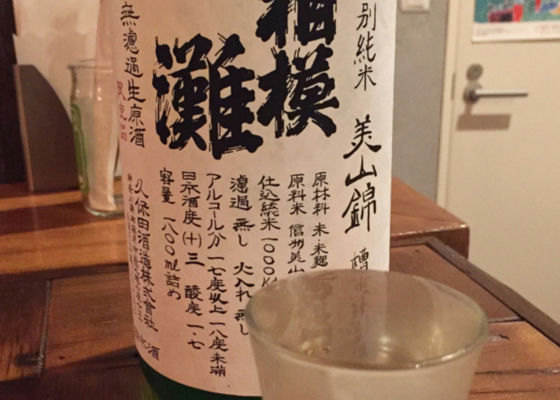 別純米 美山錦 槽
相模
灘
無濾過生原酒
原材料 米・米麹
原料米 信州美山
仕込総米 一〇〇〇K
濾過 無し 火入れ 無し
アルコール分 一七度以上一八度未満
日本酒度(十)三 酸度一・七
容量 一八〇〇ml詰め
久保田酒造株式会社